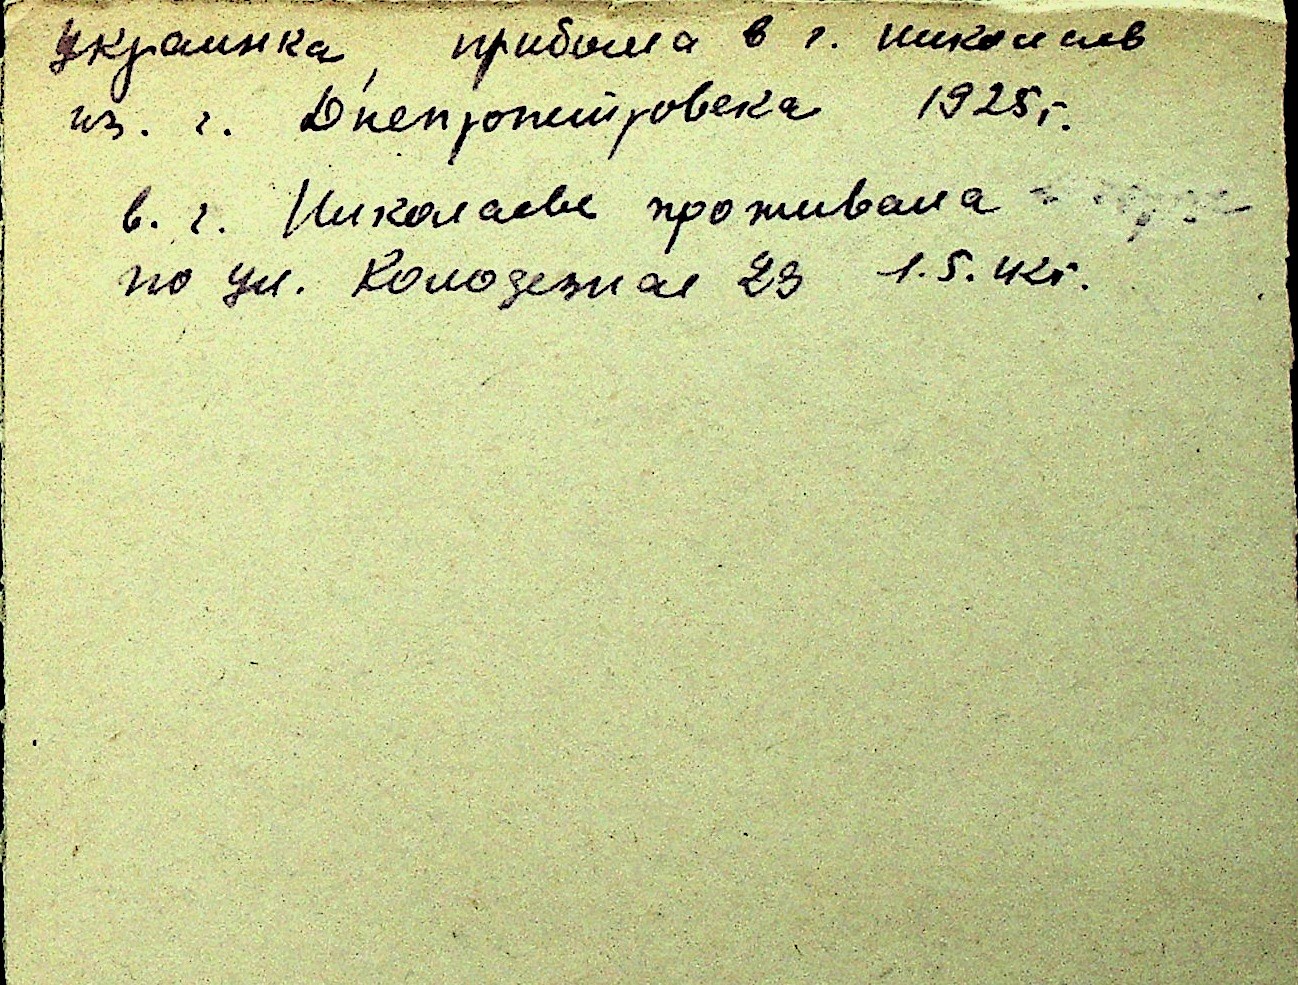 Украинка, прибыла в г. николаев
из. г. Днепропетровска 1925г.
в. г. Николаеве проживала
по ул. Колодезная 23 1.5.42г.